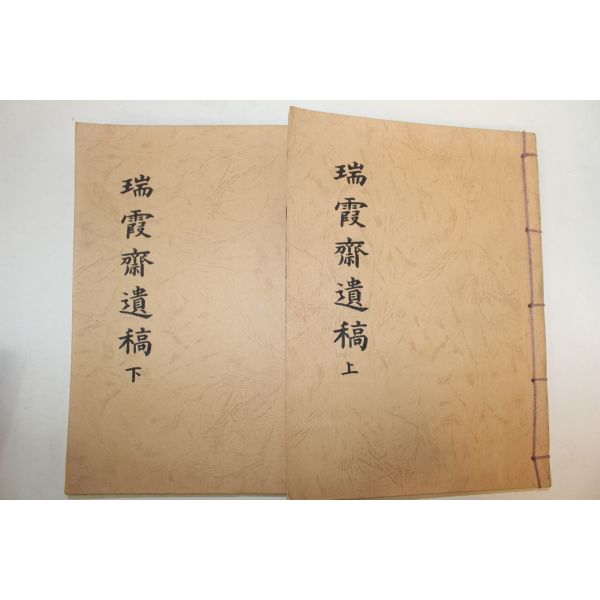 瑞霞齋遺稿 上
瑞霞齋遺稿 下